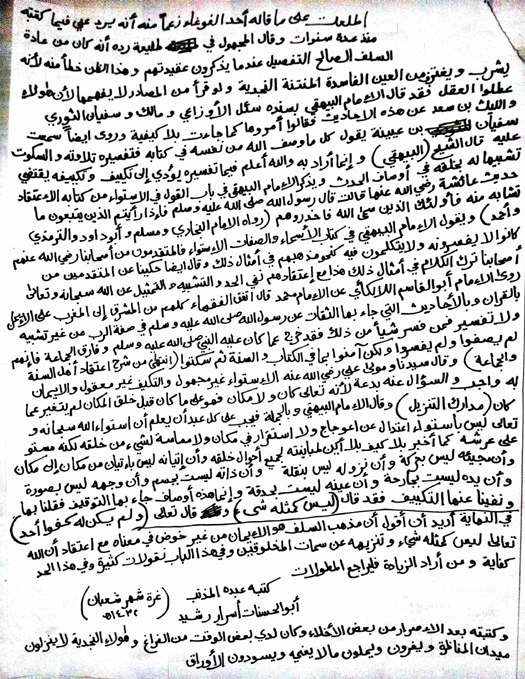 اطلعت على ما قاله أحد الغوغاء زعما منه أنه يرد علي فيما كتبته
منذ عدة سنوات وقال المجهول في طليعة رده أنه كان من عادة
السلف الصالح التفصيل عندما يذكرون عقيدتهم وهذا الظن خطأ منه لأنه
يشرب ويغترف من العين الفاسدة المنتنة النجدية ولو قرأ من المصادر لا يفهمها لأن هؤلاء
عطلوا العقل فقد قال الإمام البيهقي بسنده سئل الأوزاعي ومالك وسفيان الثوري
والليث بن سعد عن هذه الأحاديث فقالوا أمروها كما جاءت بلا كيفية وروى أيضاً سمعت
سفيان بن عيينة يقول كل ما وصف الله من نفسه في كتابه فتفسيره تلاوته والسكوت
عليه قال الشيخ (البيهقي) وإنما أراد به والله أعلم فيما تفسيره يؤدي إلى تكييف وتكييفه يقتضي
تشبيها له بخلقه في أوصاف الحدث ويذكر الإمام البيهقي في باب القول في الاستواء من كتابه الاعتقاد
حديث عائشة رضي الله عنها قالت قال رسول الله صلى الله عليه وسلم فإذا رأيتم الذين يتبعون ما
تشابه منه فأولئك الذين سمى الله فاحذروهم (رواه الإمام البخاري ومسلم وأبو داود والترمذي
وأحمد) ويقول الإمام البيهقي في كتاب الأسماء والصفات الاستواء فالمتقدمون من أصحابنا رضي الله عنهم
كانوا لا يفسرونه ولا يتكلمون فيه كنحو مذهبهم في أمثال ذلك وقال أيضا حكينا عن المتقدمين من
أصحابنا ترك الكلام في أمثال ذلك هذا مع إعتقادهم نفي الحد والتشبيه والتمثيل عن الله سبحانه وتعالى
روى الإمام أبو القاسم اللالكائي عن الإمام محمد قال اتفق الفقهاء كلهم من المشرق إلى المغرب على الإيمان
بالقران وبالأحاديث التي جاء بها الثقات عن رسول الله صلى الله عليه وسلم في صفة الرب من غير تشبيه
ولا تفسير فمن فسر شيأ من ذلك فقد خرج عما كان عليه النبي صلى الله عليه وسلم و فارق الجماعة فإنهم
لم يصفوا ولم يفسروا ولكن آمنوا بما في الكتاب والسنة ثم سكتوا (انتهى من شرح اعتقاد أهل السنة
والجماعة) وقال سيدنا ومولى علي رضي الله عنه الاستواء غير مجهول والتكيف غير معقول والايمان
به واجب و السؤال عنه بدعة لأنه تعالى كان ولا مكان فهو على ما كان قبل خلق المكان لم يتغير عما
كان (مدارك التنزيل) وقال الإمام البيهقي و بالجملة فيجب على كل عبد أن يعلم أن استواء الله سبحانه و
تعالى ليس باستواء اعتدال عن اعوجاج ولا استقرار في مكان ولا مماسة لشيء من خلقه لكنه مستو
على عرشه كما أخبر بلا كيف بلا أين لمباينته لجميع أحوال خلقه وأن إتيانه ليس بإتيان من مكان إلى مكان
وأن مجيئه ليس بحركة وأن نزوله ليس بنقلة وأن ذاته ليست بجسم وأن وجهه ليس بصورة
وأن يده ليست بجارحة وأن عينه ليست بحدقة وإنما هذه أوصاف جاء بها التوقيف فقلنا بها
ونفينا عنها التكييف فقد قال (ليس كمثله شيء) و قال تعالى (ولم يكن له كفوا أحد)
في النهاية أريد أن أقول أن مذهب السلف هو الايمان من غير خوض في معناه مع اعتقاد أن الله
تعالى ليس كمثله شيء و تنزيهه عن سمات المخلوقين وفي هذا الباب نقولات كثيرة وفي هذا الحد
كفاية و من أراد الزيادة فليراجع المطولات
كتبه عبده المذنب
أبو الحسنات أسرار رشيد (غرة شهر شعبان ١٤٣٢ه)
وكتبته بعد الإصرار من بعض الأخلاء وكان لدي بعض الوقت من الفراغ و هؤلاء النجدية لا ينزلون
ميدان المناظرة ويفرون ويملون ما لا يعنيه ويسودون الأوراق